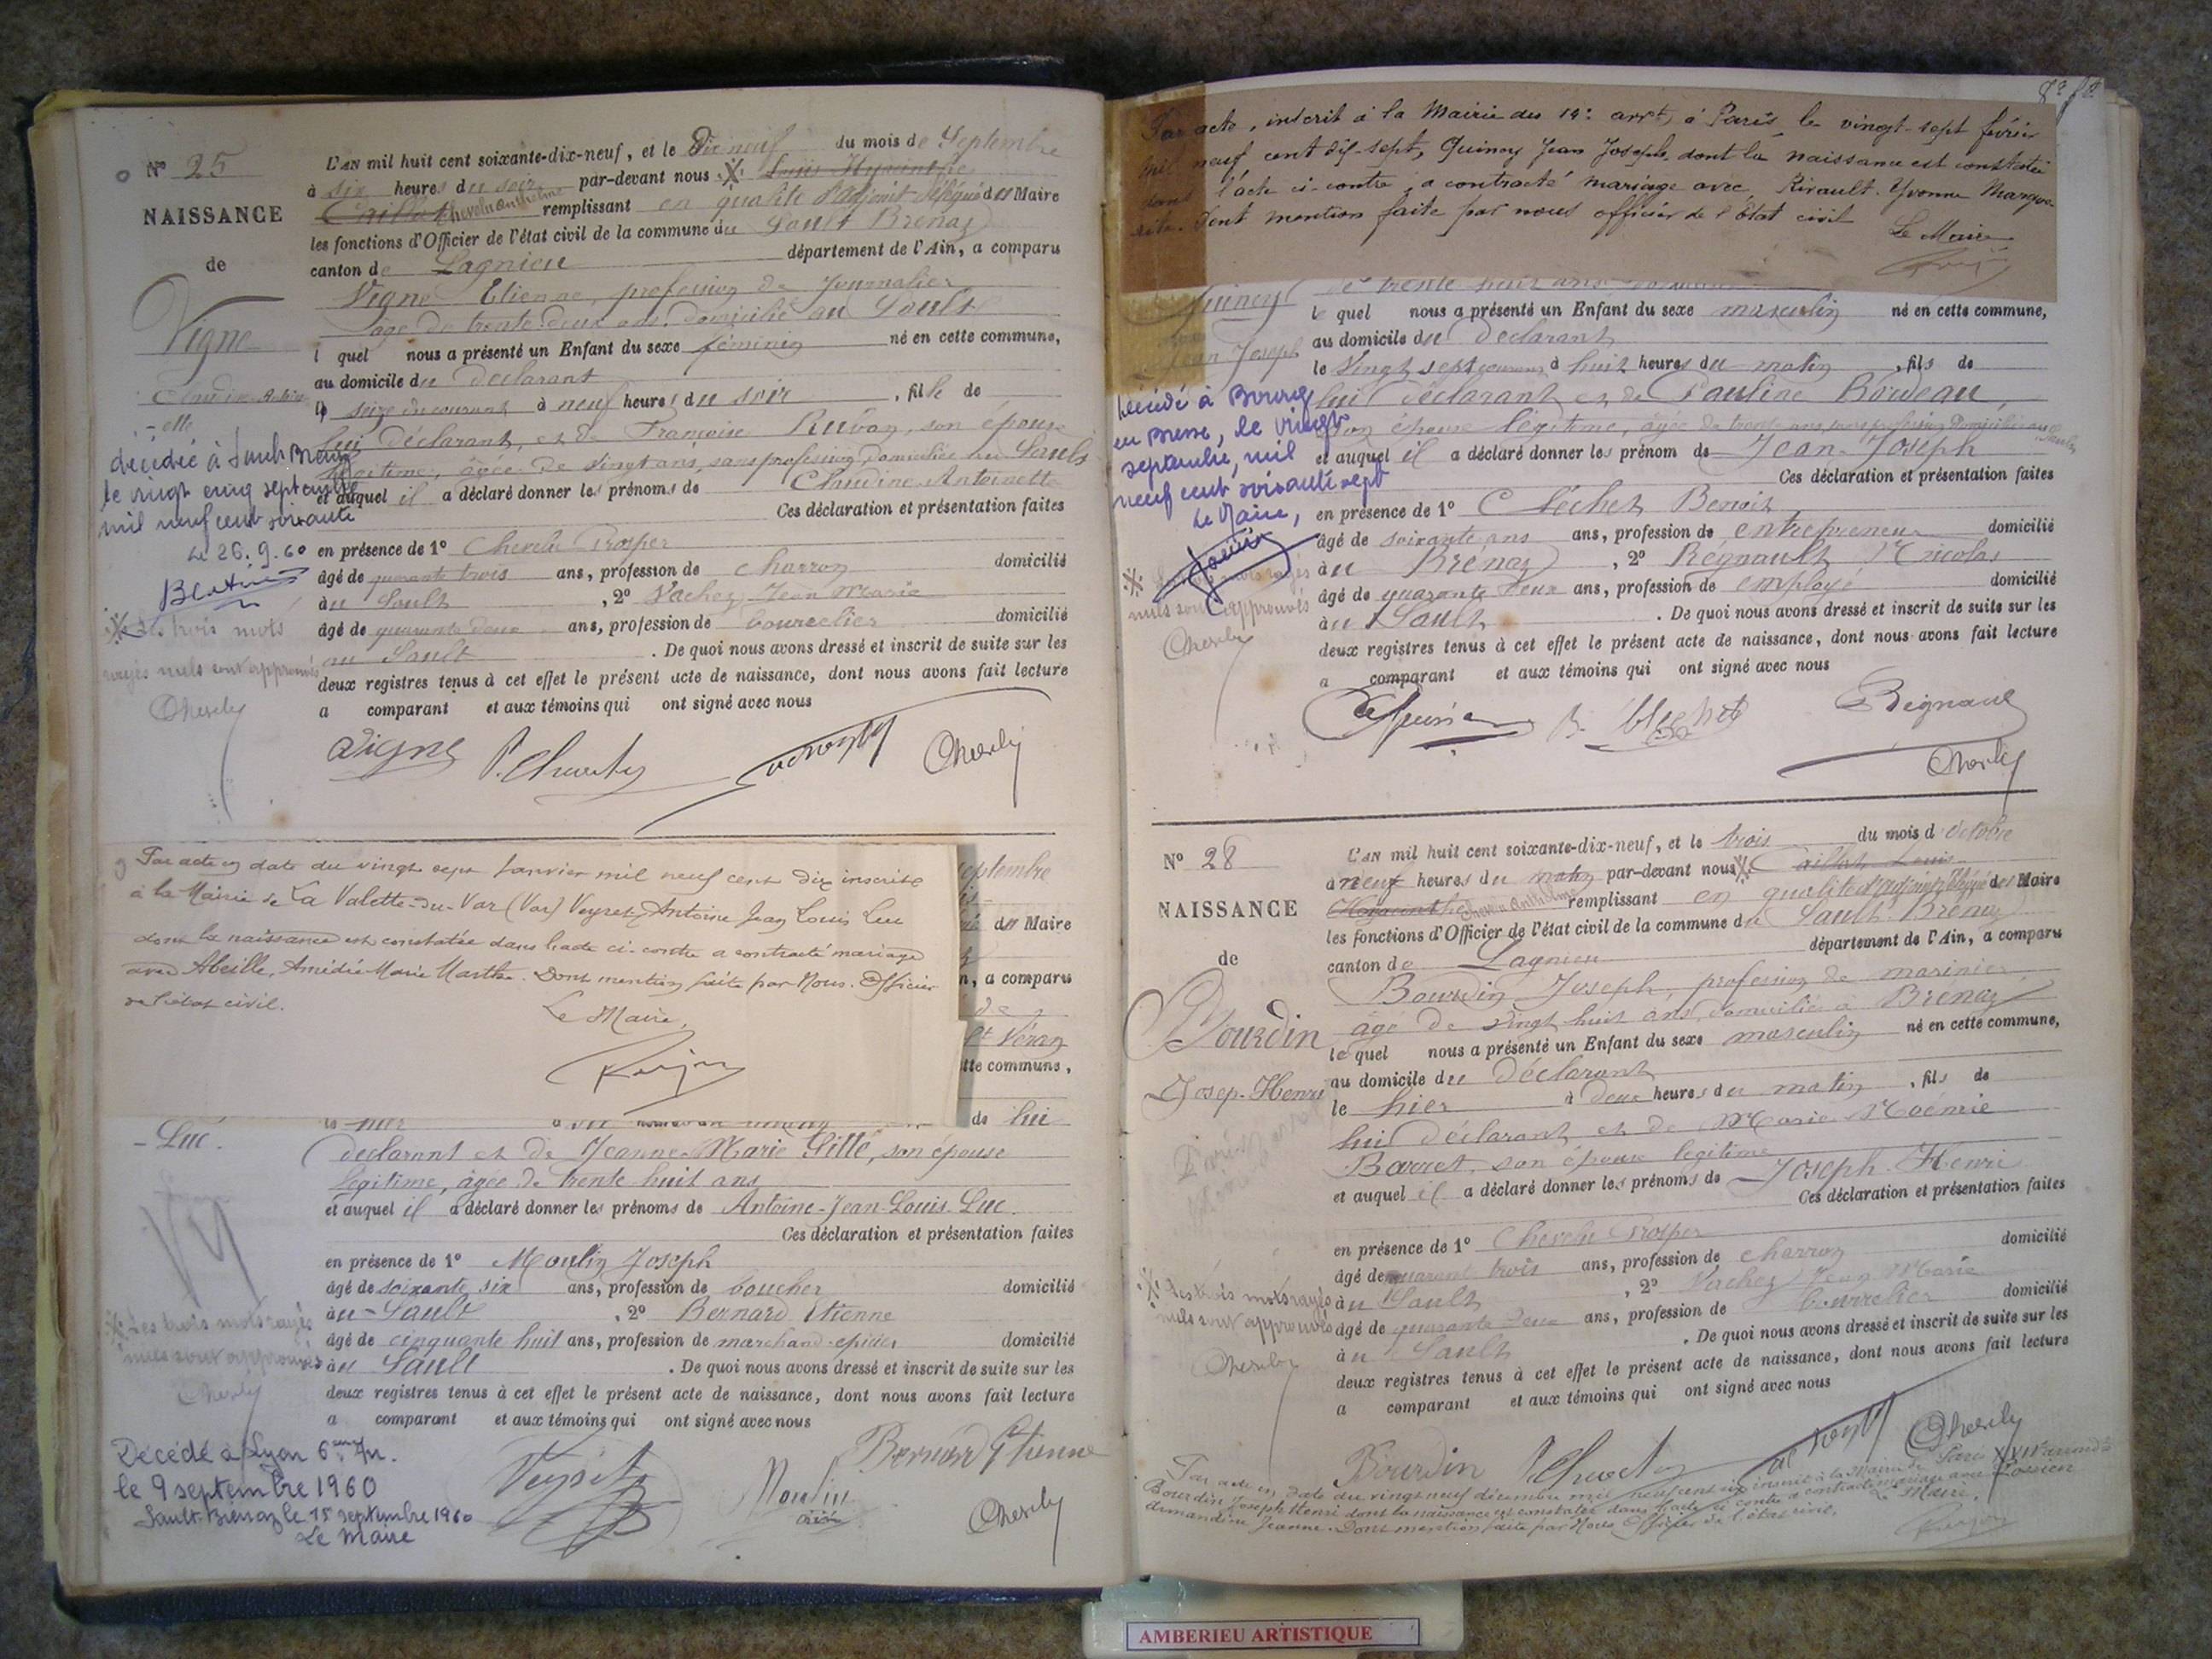 Nº 25
NAISSANCE
de
Vigne
Claudine Antoin
-ette
décédée à Sault Brénaz
le vingt cinq septembre
mil neuf cent soixante
Le 26.9.60
les trois mots
rayés nuls sont approuvés
L'AN mil huit cent soixante-dix-neuf, et le Dix neuf du mois de Septembre
à six heures du soir par-devant nous Louis Hyacinthe
Caillat Cherelu Anthelme remplissant en qualité d'adjoint délégué des Maire
les fonctions d'Officier de l'état civil de la commune du Sault Brénaz
canton de Lagnieu département de l'Ain, a comparu
Vigne Etienne, profession de Journalier
age de trente deux ans, domicilié au Sault
l quel nous a présenté un Enfant du sexe féminin né en cette commune,
au domicile du déclarant
le seize du courant à neuf heures du soir, fille de
lui déclarant, et de Françoise Ruban, son épouse
légitime, âgée de vingt ans, sans profession, domiciliée au Sault
et auquel il a déclaré donner les prénoms de Claudine Antoinette
Ces déclaration et présentation faites
en présence de 1º Cherelu Prosper
âgé de quarante trois ans, profession de charron domicilié
au Sault, 2º Vachez Jean Marie
âgé de quarante deux ans, profession de bourrelier domicilié
au Sault. De quoi nous avons dressé et inscrit de suite sur les
deux registres tenus à cet effet le présent acte de naissance, dont nous avons fait lecture
a comparant et aux témoins qui ont signé avec nous
Vigne
Par acte en date du vingt sept Janvier mil neuf cent dix inscrite
à la Mairie de La Valette-du-Var (Var) Veyret, Antoine Jean Louis Luc
dont la naissance est constatée dans l'acte ci-contre a contracté mariage
avec Abeille, Amédée Marie Marthe. Dont mention faite par Nous. Officier
de l'état civil.
Le Maire,
eptembre
des Maire
n, a comparu
St Véran
tte commune,
de lui
- Luc.
déclarant et de Jeanne-Marie Gitte, son épouse
légitime, âgée de trente huit ans
et auquel il a déclaré donner les prénoms de Antoine-Jean-Louis-Luc.
Ces déclaration et présentation faites
en présence de 1º Moulin Joseph
âgé de soixante six ans, profession de boucher domicilié
au Sault, 2º Bernard Etienne
âgé de cinquante huit ans, profession de marchand-épicier domicilié
au Sault. De quoi nous avons dressé et inscrit de suite sur les
deux registres tenus à cet effet le présent acte de naissance, dont nous avons fait lecture
a comparant et aux témoins qui ont signé avec nous
Les trois mots rayés
nuls sont approuvés
Décédé à Lyon 6ème Arr.
le 9 septembre 1960
Sault-Brénaz le 15 septembre 1960
Le Maire
Veyret
Moulin
Bernard Etienne
Par acte, inscrit à la Mairie du 14e arrt, à Paris, le vingt-sept février
mil neuf cent dix-sept, Quinoy Jean Joseph, dont la naissance est constatée
dans l'acte ci-contre, a contracté mariage avec Rivault Yvonne Margue-
rite. Dont mention faite par nous officier de l'état civil
Le Maire
de trente huit ans
Jean Joseph
le quel nous a présenté un Enfant du sexe masculin né en cette commune,
au domicile du déclarant
le Vingt sept courant à huit heures du matin, fils de
lui déclarant et de Pauline Boudeau,
son épouse légitime, âgée de trente ans, sans profession Domiciliée au Sault
et auquel il a déclaré donner les prénom de Jean-Joseph
Ces déclaration et présentation faites
en présence de 1º Cléchet Benoit
âgé de soixante ans ans, profession de entrepreneur domicilié
au Brénaz, 2º Régnault Nicolas
âgé de quarante deux ans, profession de employé domicilié
au Sault. De quoi nous avons dressé et inscrit de suite sur les
deux registres tenus à cet effet le présent acte de naissance, dont nous avons fait lecture
a comparant et aux témoins qui ont signé avec nous
décédé à Bourg
en Bresse, le vingt
septembre, mil
neuf cent soixante sept
Le Maire,
mots rayés
nuls sont approuvés
Nº 28
NAISSANCE
de
Bourdin
Josep-Henri
L'AN mil huit cent soixante-dix-neuf, et le trois du mois d'Octobre
à neuf heures du matin par-devant nous Caillat Louis
Hyacinthe Cherelu Anthelme remplissant en qualité d'adjoint délégué des Maire
les fonctions d'Officier de l'état civil de la commune du Sault-Brénaz
canton de Lagnieu département de l'Ain, a comparu
Bourdin Joseph, profession de marinier,
âgé de vingt huit ans, domicilié à Brénaz
le quel nous a présenté un Enfant du sexe masculin né en cette commune,
au domicile du Déclarant
le hier à deux heures du matin, fils de
lui déclarant et de Marie Noémie
Barret, son épouse légitime
et auquel il a déclaré donner les prénoms de Joseph-Henri
Ces déclaration et présentation faites
en présence de 1º Cherelu Prosper
âgé de quarante trois ans, profession de charron domicilié
au Sault, 2º Vachez Jean Marie
âgé de quarante deux ans, profession de bourrelier domicilié
au Sault. De quoi nous avons dressé et inscrit de suite sur les
deux registres tenus à cet effet le présent acte de naissance, dont nous avons fait lecture
a comparant et aux témoins qui ont signé avec nous
les trois mots rayés
nuls sont approuvés
Bourdin
Par acte en date du vingt neuf décembre mil neuf cent six inscrit à la Mairie de Paris
Bourdin Joseph Henri dont la naissance est constatée dans l'acte ci contre a contracté mariage avec
Amandine Jeanne. Dont mention faite par Nous Officier de l'état civil. Le Maire.
AMBERIEU ARTISTIQUE